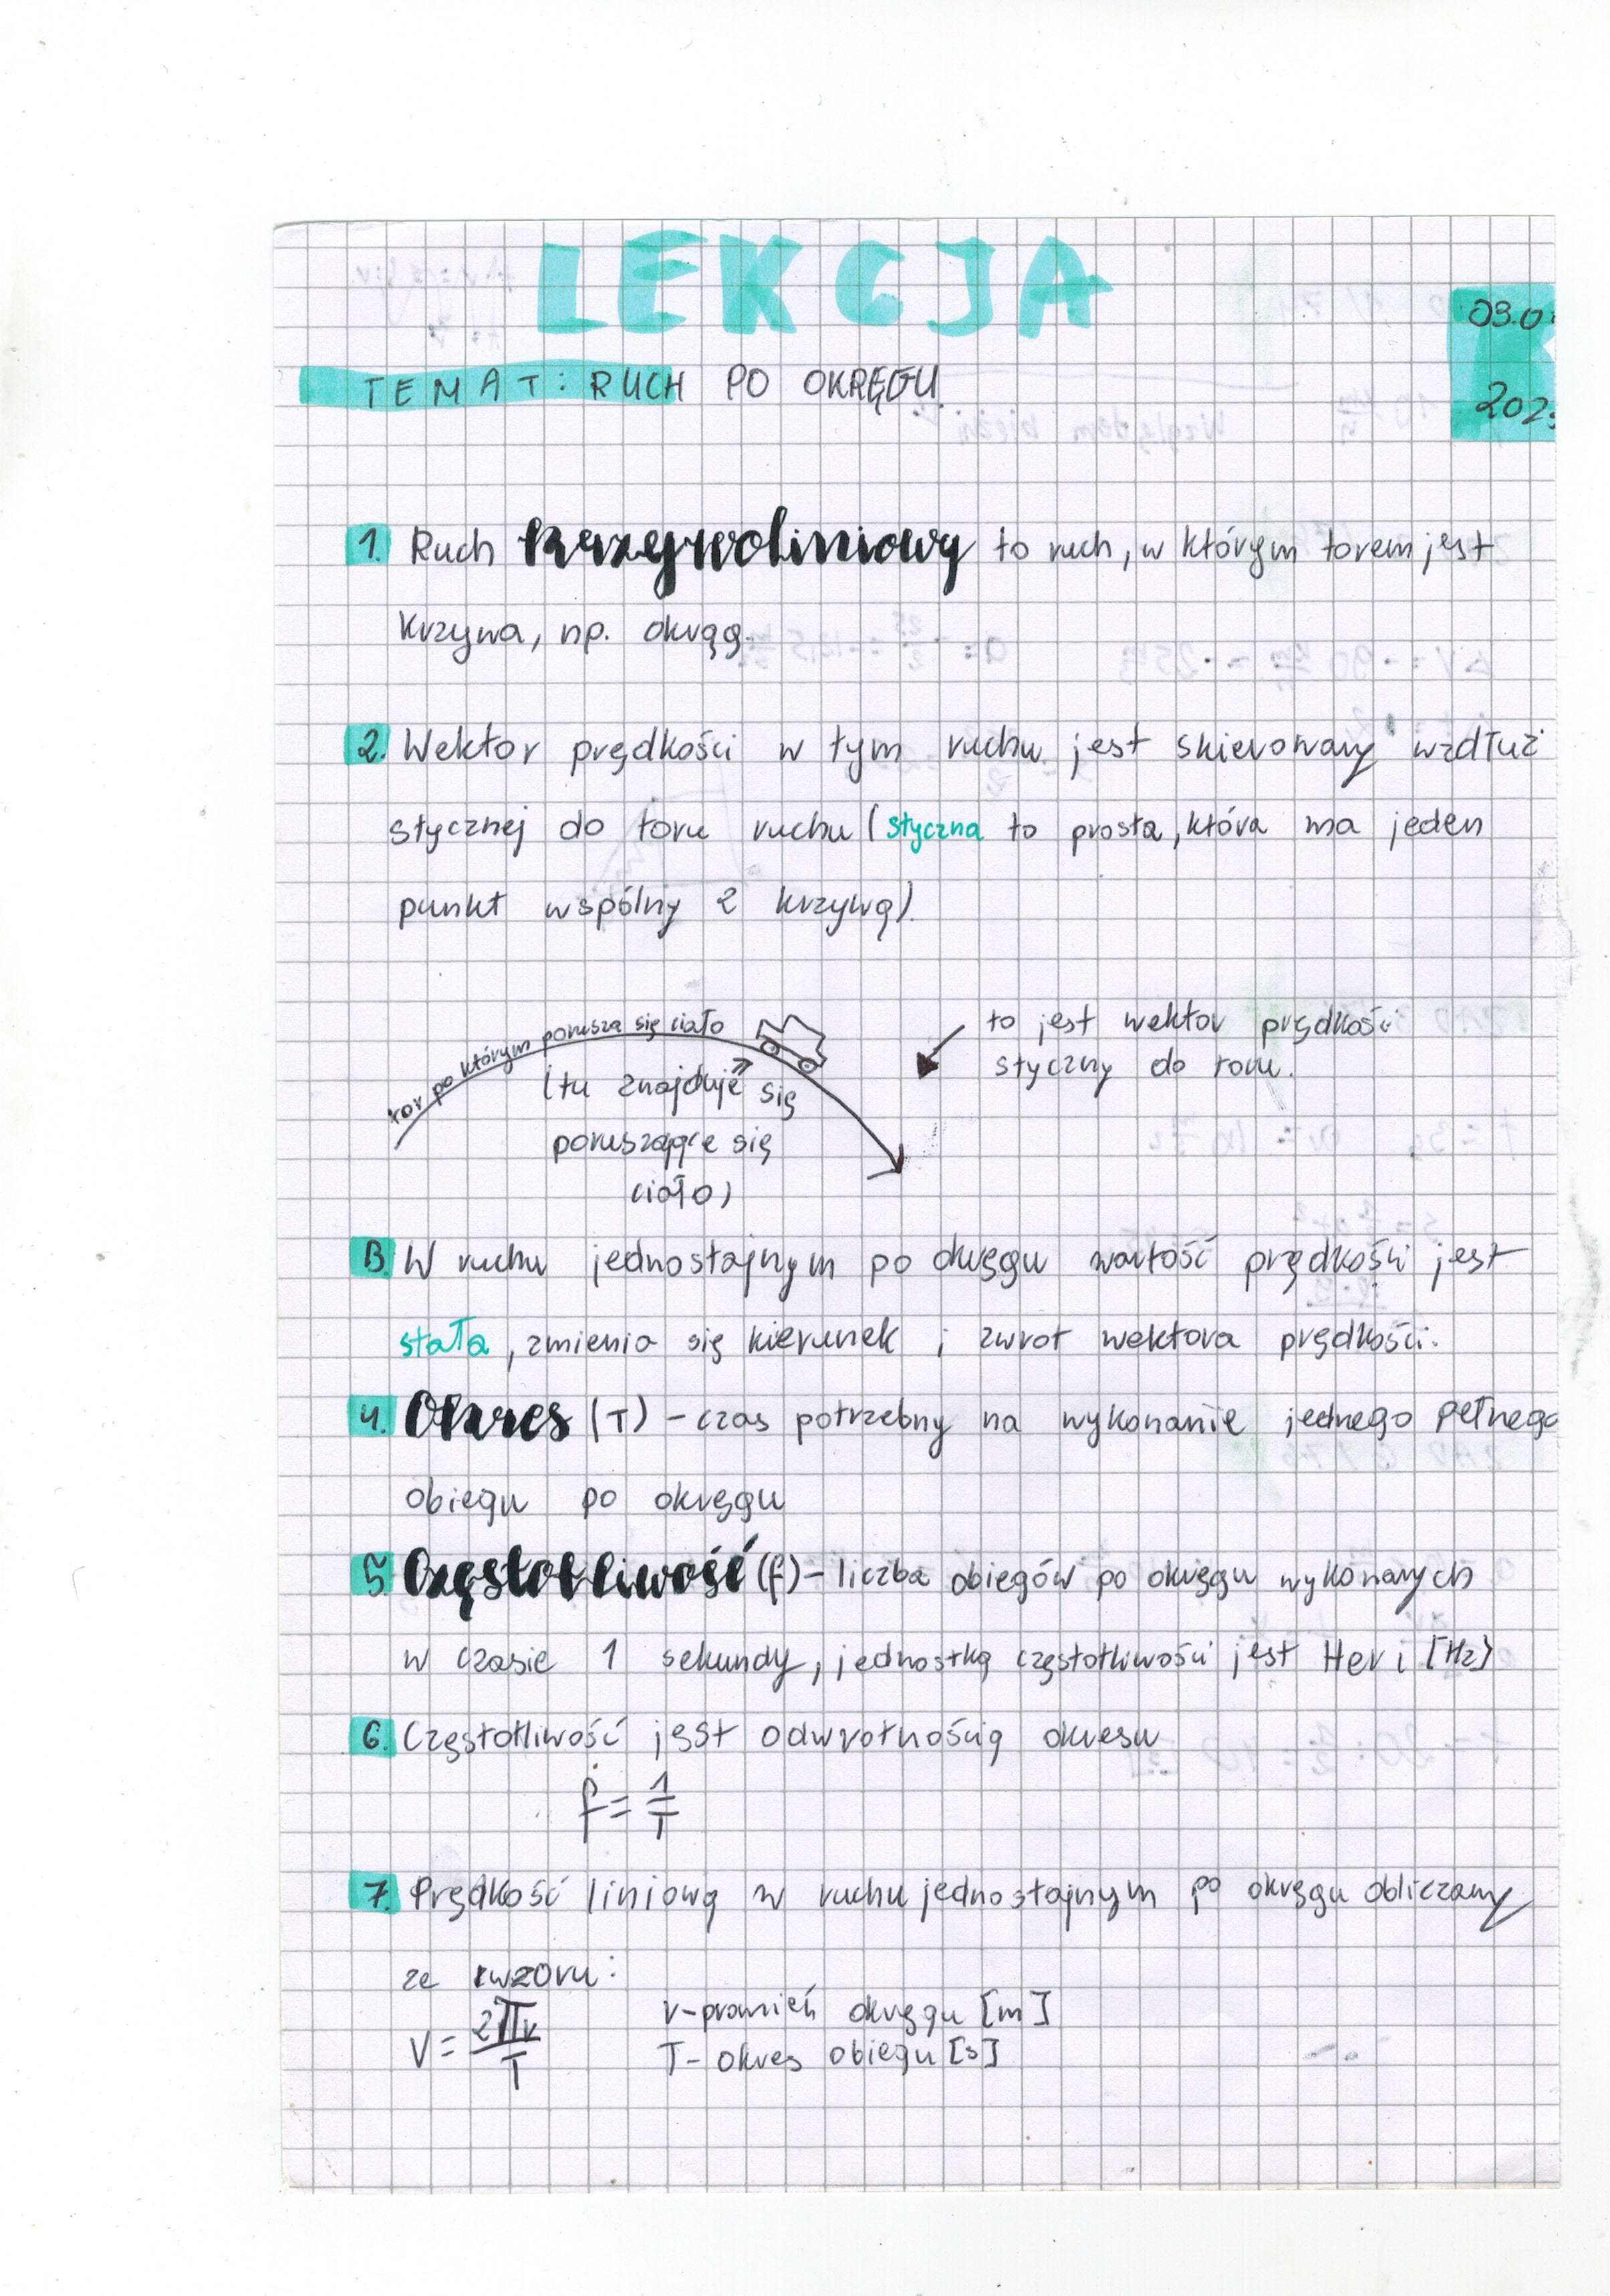 LEKCJA
03.0
TEMAT: RUCH PO OKRĘGU
202
1. Ruch krzywoliniowy to ruch, w którym torem jest
krzywa, np. okrąg.
2. Wektor prędkości w tym ruchu jest skierowany wzdłuż
stycznej do toru ruchu (styczna to prosta, która ma jeden
punkt wspólny z krzywą).
tor po którym porusza się ciało
(tu znajduje się
poruszające się
ciało)
to jest wektor prędkości
styczny do toru.
3. W ruchu jednostajnym po okręgu wartość prędkości jest
stała, zmienia się kierunek i zwrot wektora prędkości.
4. Okres (T) - czas potrzebny na wykonanie jednego pełnego
obiegu po okręgu
5. Częstotliwość (f) - liczba obiegów po okręgu wykonanych
w czasie 1 sekundy, jednostką częstotliwości jest Herc [Hz]
6. Częstotliwość jest odwrotnością okresu
f = 1/T
7. Prędkość liniową w ruchu jednostajnym po okręgu obliczamy
ze wzoru:
V = 2πr/T
r - promień okręgu [m]
T - okres obiegu [s]